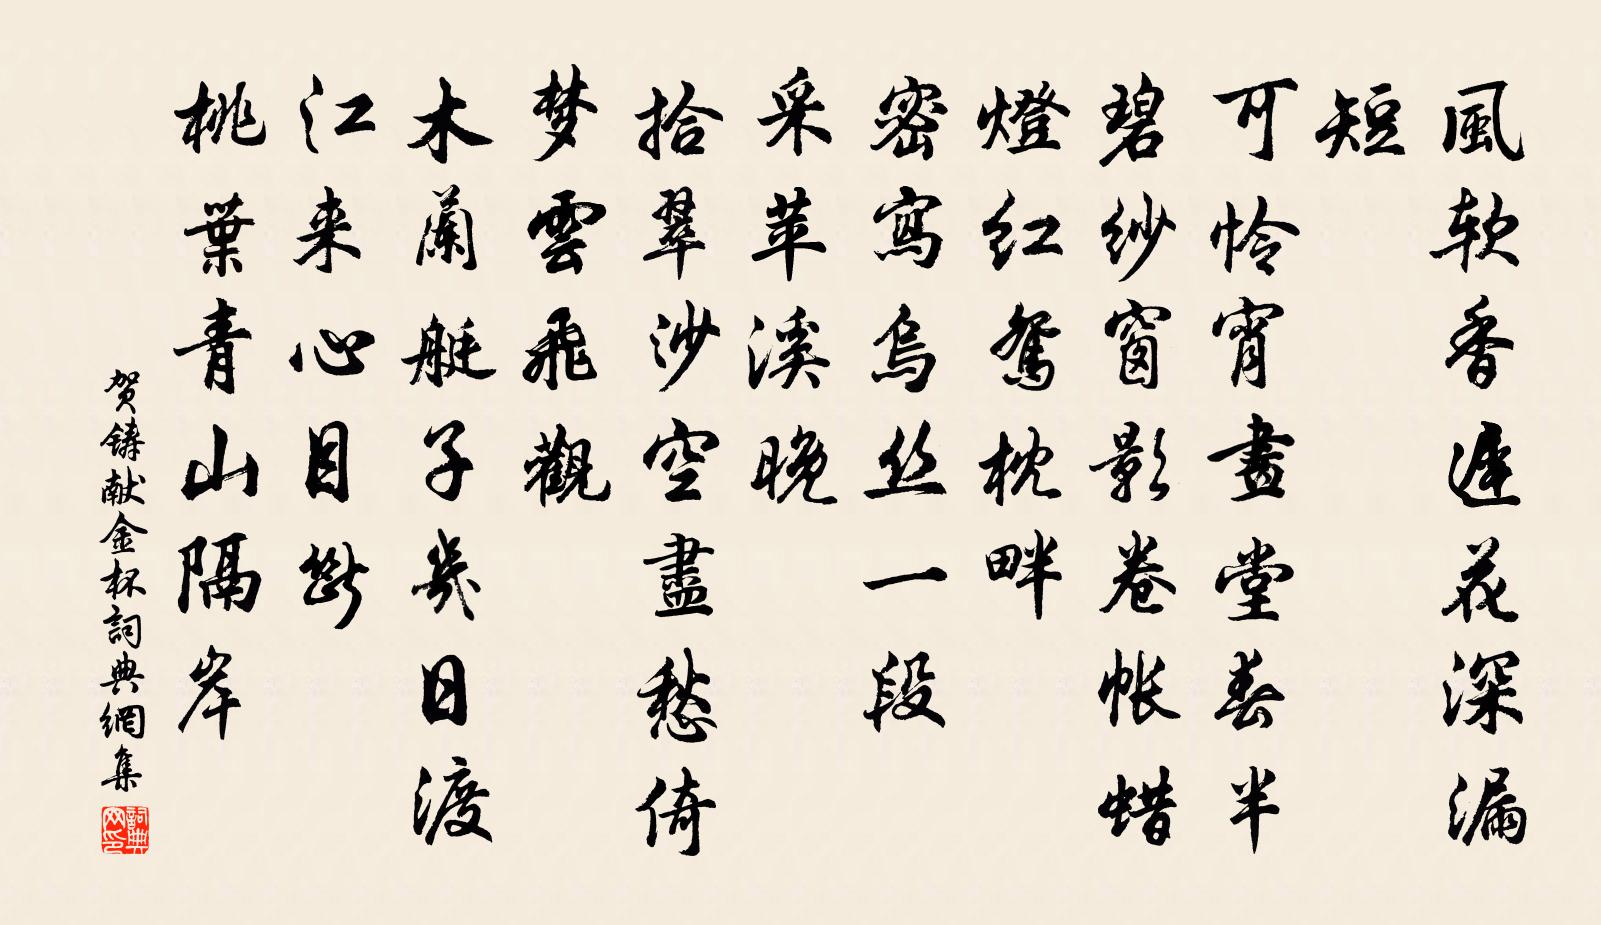 風软香遲花深漏
短
可怜宵畫堂春半
碧纱窗影卷帐蜡
燈红鴛枕畔
密寫烏丝一段
采苹溪晚
拾翠沙空盡愁倚
梦雲飛觀
木蘭艇子幾日渡
江来心目斷
桃葉青山隔岸
贺铸献金杯詞典網集
詞典网印